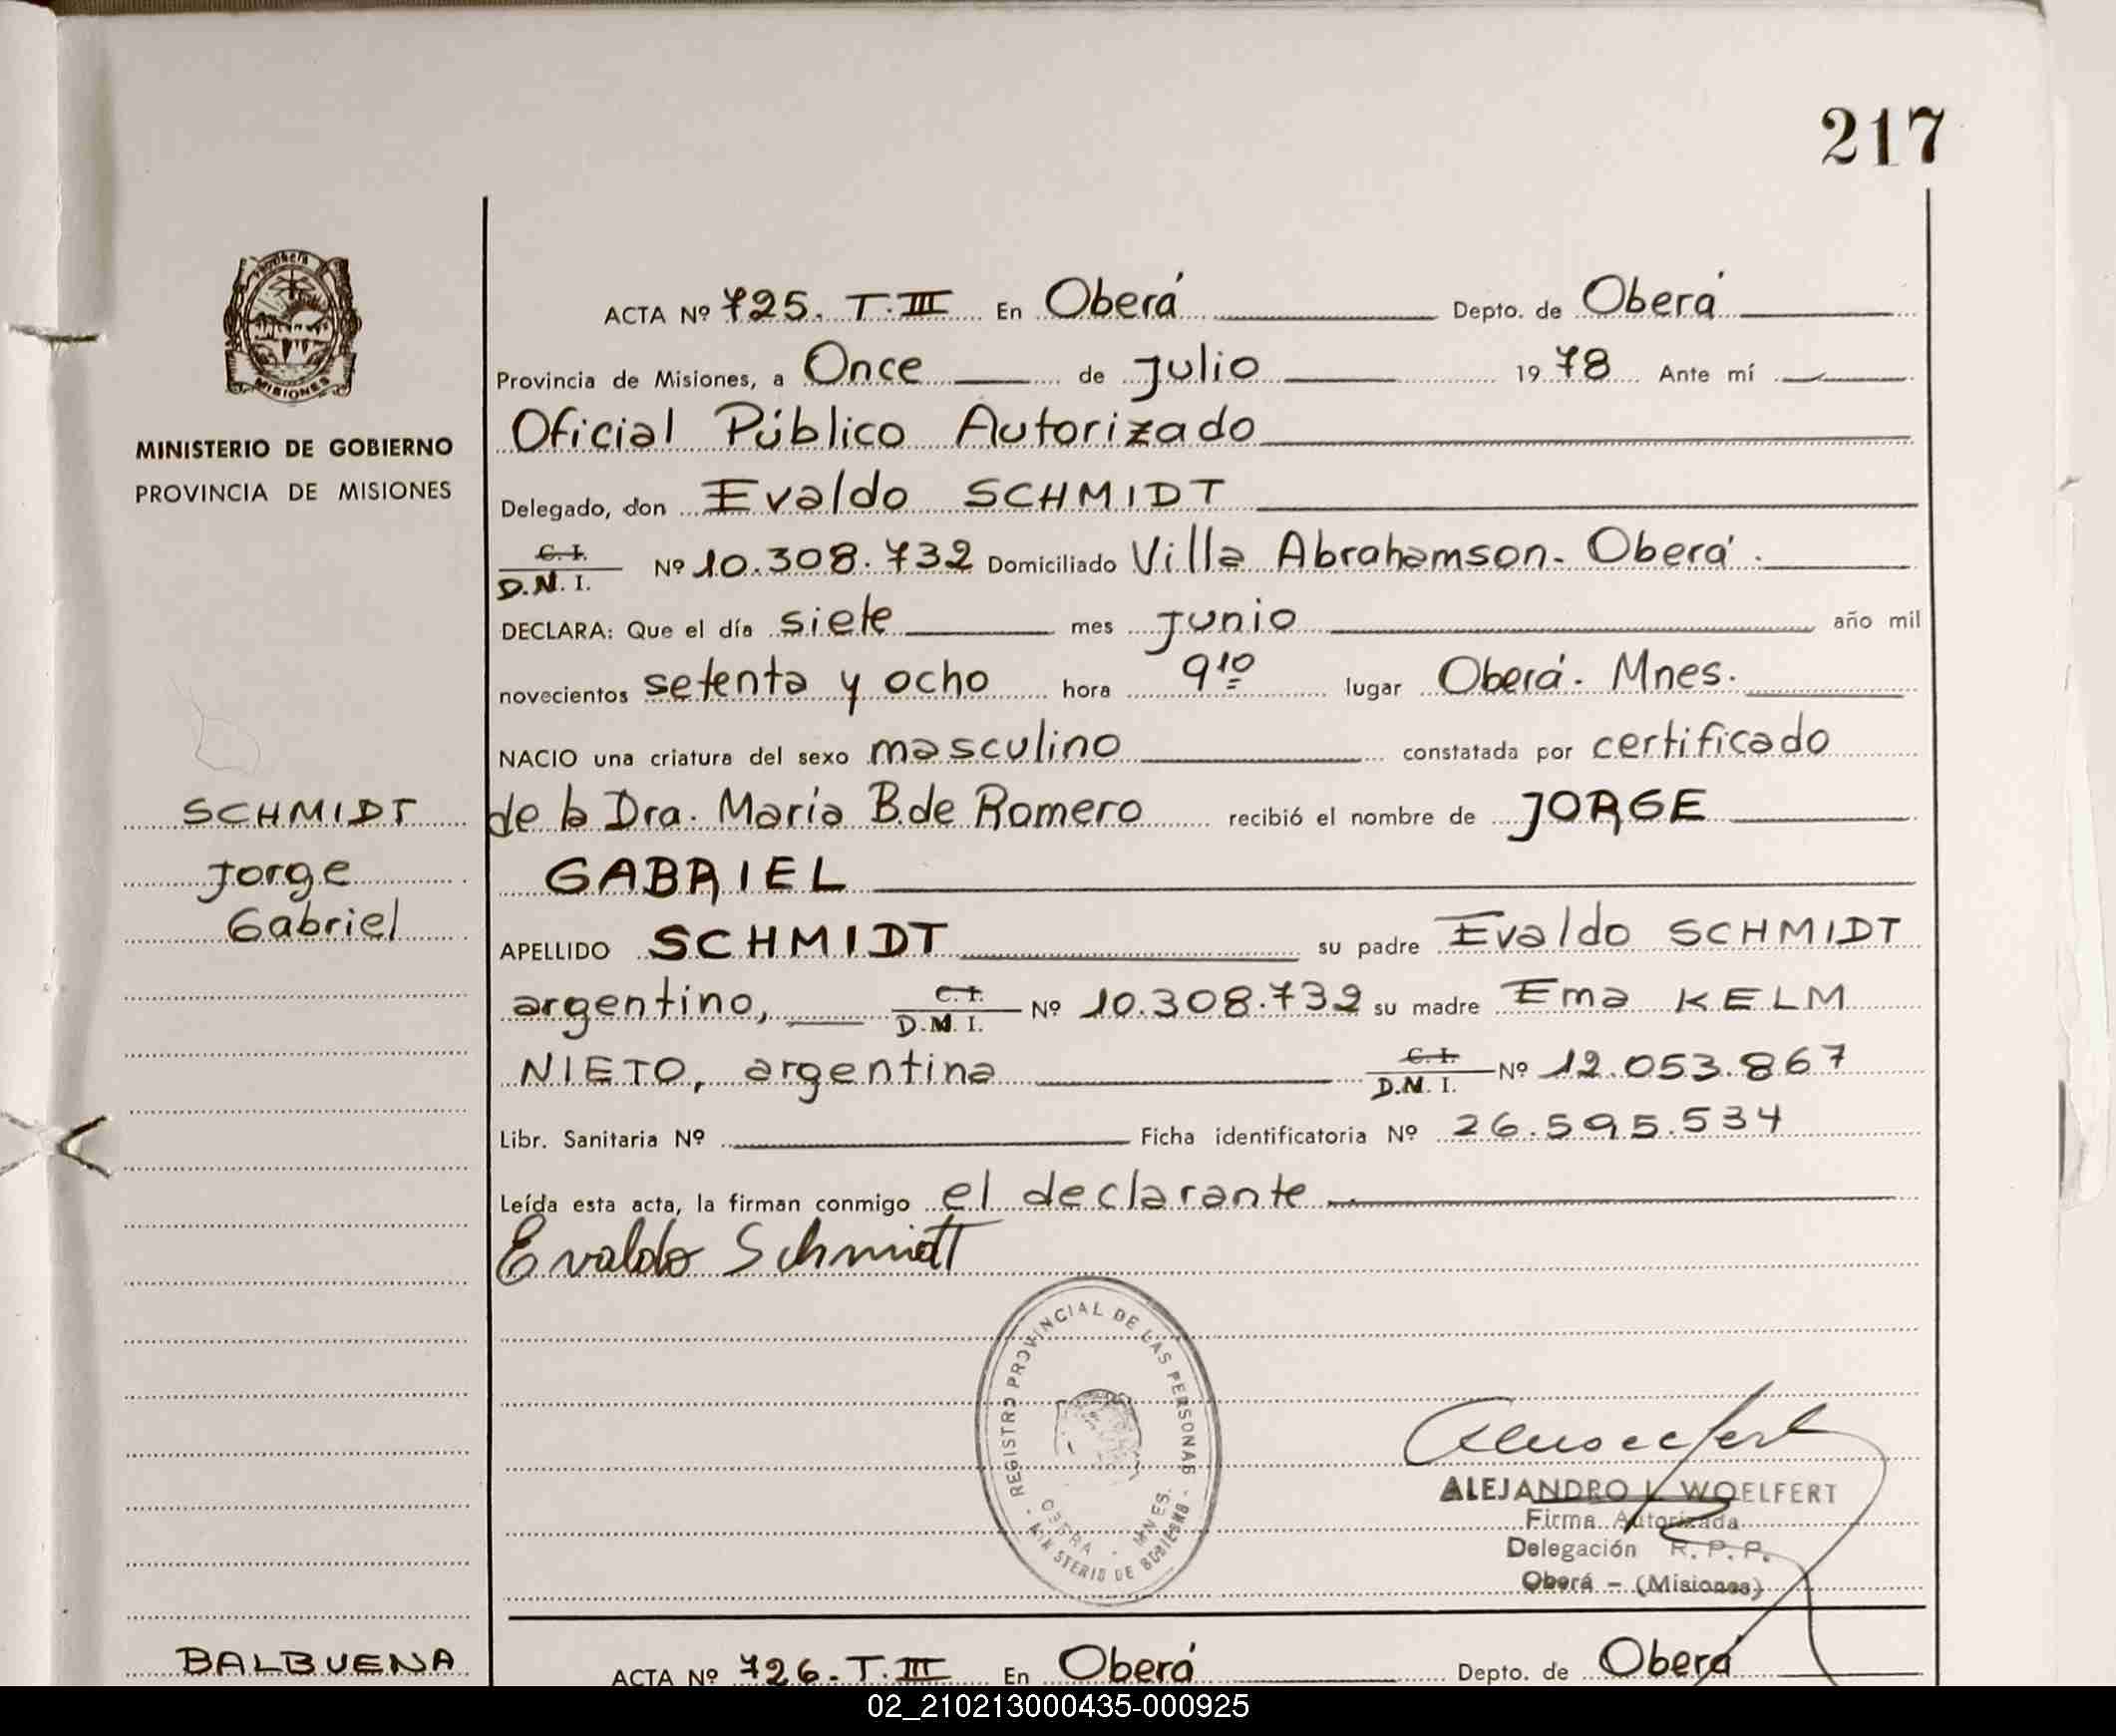 217
MISIONES
MINISTERIO DE GOBIERNO
PROVINCIA DE MISIONES
ACTA Nº 725. T.III En Oberá Depto. de Oberá
Provincia de Misiones, a Once de Julio 1978 Ante mí
Oficial Público Autorizado
Delegado, don Evaldo SCHMIDT
C.I.
D.N.I. Nº 10.308.732 Domiciliado Villa Abrahamson. Oberá.
DECLARA: Que el día siete mes Junio año mil
novecientos setenta y ocho hora 9 10 lugar Oberá. Mnes.
NACIO una criatura del sexo masculino constatada por certificado
SCHMIDT
Jorge
Gabriel
de la Dra. María B. de Romero recibió el nombre de JORGE
GABRIEL
APELLIDO SCHMIDT su padre Evaldo SCHMIDT
argentino, C.I. D.M.I. Nº 10.308.732 su madre Ema KELM
NIETO, argentina C.I. D.M.I. Nº 12.053.867
Libr. Sanitaria Nº Ficha identificatoria Nº 26.595.534
Leída esta acta, la firman conmigo el declarante
Evaldo Schmidt
REGISTRO PROVINCIAL DE LAS PERSONAS
OBERA - MNES.
MINISTERIO DE GOBIERNO
ALEJANDRO L. WOELFERT
Firma Autorizada
Delegación R. P. P.
Oberá - (Misiones)
BALBUENA
ACTA Nº 726. T.III En Oberá Depto. de Oberá
02_210213000435-000925